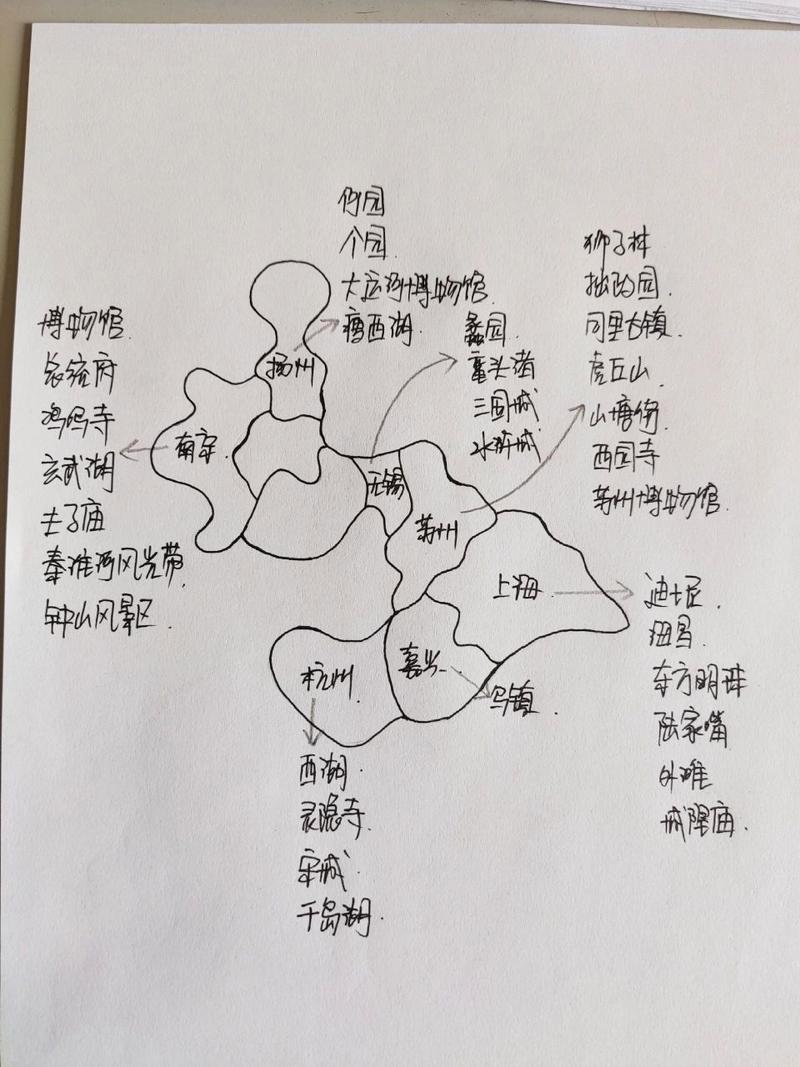 何园
个园
大运河博物馆
瘦西湖
扬州
博物馆
总统府
鸡鸣寺
玄武湖
夫子庙
秦淮河风光带
钟山风景区
南京
蠡园
鼋头渚
三国城
水浒城
无锡
狮子林
拙政园
同里古镇
虎丘山
山塘街
西园寺
苏州博物馆
苏州
上海
迪士尼
东方明珠
陆家嘴
外滩
城隍庙
嘉兴
乌镇
杭州
西湖
灵隐寺
宋城
千岛湖